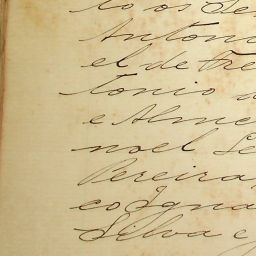 to os Se
Antonio
el de Fre
tonio d
e Alme
noel Se
Pereira
co Igna
Silva e